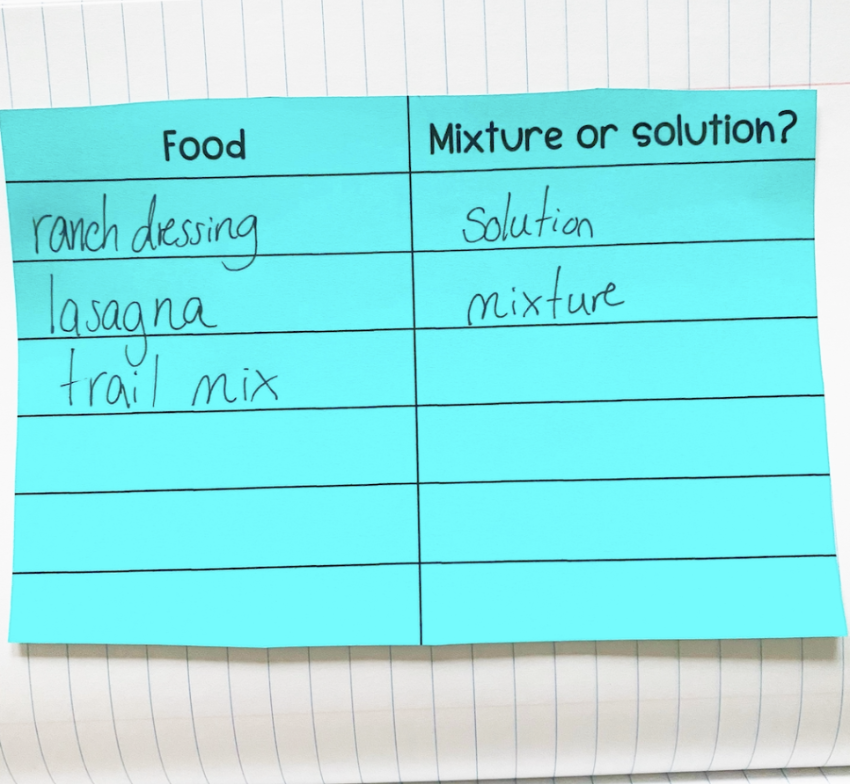 Food Mixture or solution?
ranch dressing solution
lasagna mixture
trail mix